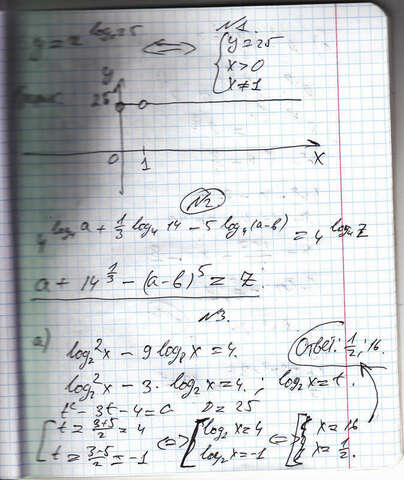 N1.
y = x^{log_x 25} <=> { y = 25
x > 0
x ≠ 1
y
25
0 1 x
N2
4^{log_4 a + 1/3 log_4 14 - 5 log_4 (a-b)} = 4^{log_4 z}
a + 14^{1/3} - (a-b)^5 = z.
N3.
a) log_2^2 x - 9 log_8 x = 4. Ответ: 1/2; 16.
log_2^2 x - 3 · log_2 x = 4. ; log_2 x = t.
t² - 3t - 4 = 0 D = 25
[ t = (3+5)/2 = 4 <=> [ log_2 x = 4 <=> [ x = 16
t = (3-5)/2 = -1 log_2 x = -1 x = 1/2.